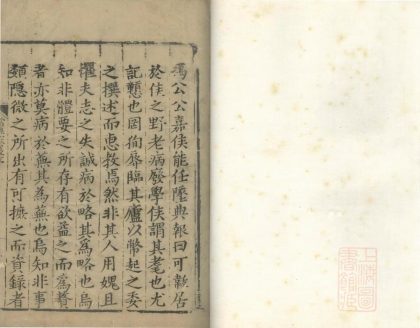 馮公公嘉侯能任墜典報曰可歟居
於侯之野老病廢學侯謂其耄也尤
記憩也因徇辱臨其廬以幣起之委
之撰述而惠教焉然非其人用媿且
懼夫志之失誠病於略其為略也烏
知非體要之所存有欲益之而為贅
者亦莫病於蕪其為蕪也烏知非事
類隱微之所出有可摭之而資録者
上海圖
書館藏